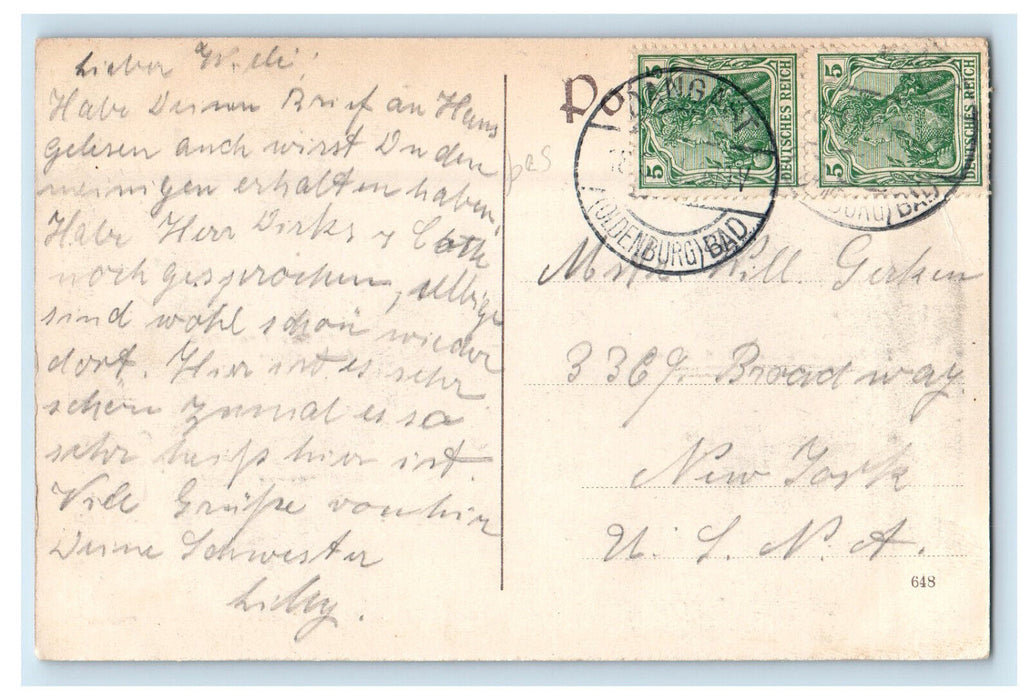 Lieber Willi!
Habe Deinen Brief an Hans
gelesen auch wirst Du den
meinigen erhalten haben,
Habe Herr Dirks
noch gesprochen, selbige
sind wohl schon wieder
dort. Hier ist es sehr
schön zumal es so
sehr heiß hier ist.
Viele Grüße von hier
Deine Schwester
Lilly.
Po
5 DEUTSCHES REICH 5
5 DEUTSCHES REICH 5
DANGAST
(OLDENBURG) BAD
BURG) BAD
Will. Gerken
3367. Broadway
New York
U. S. N. A.
648